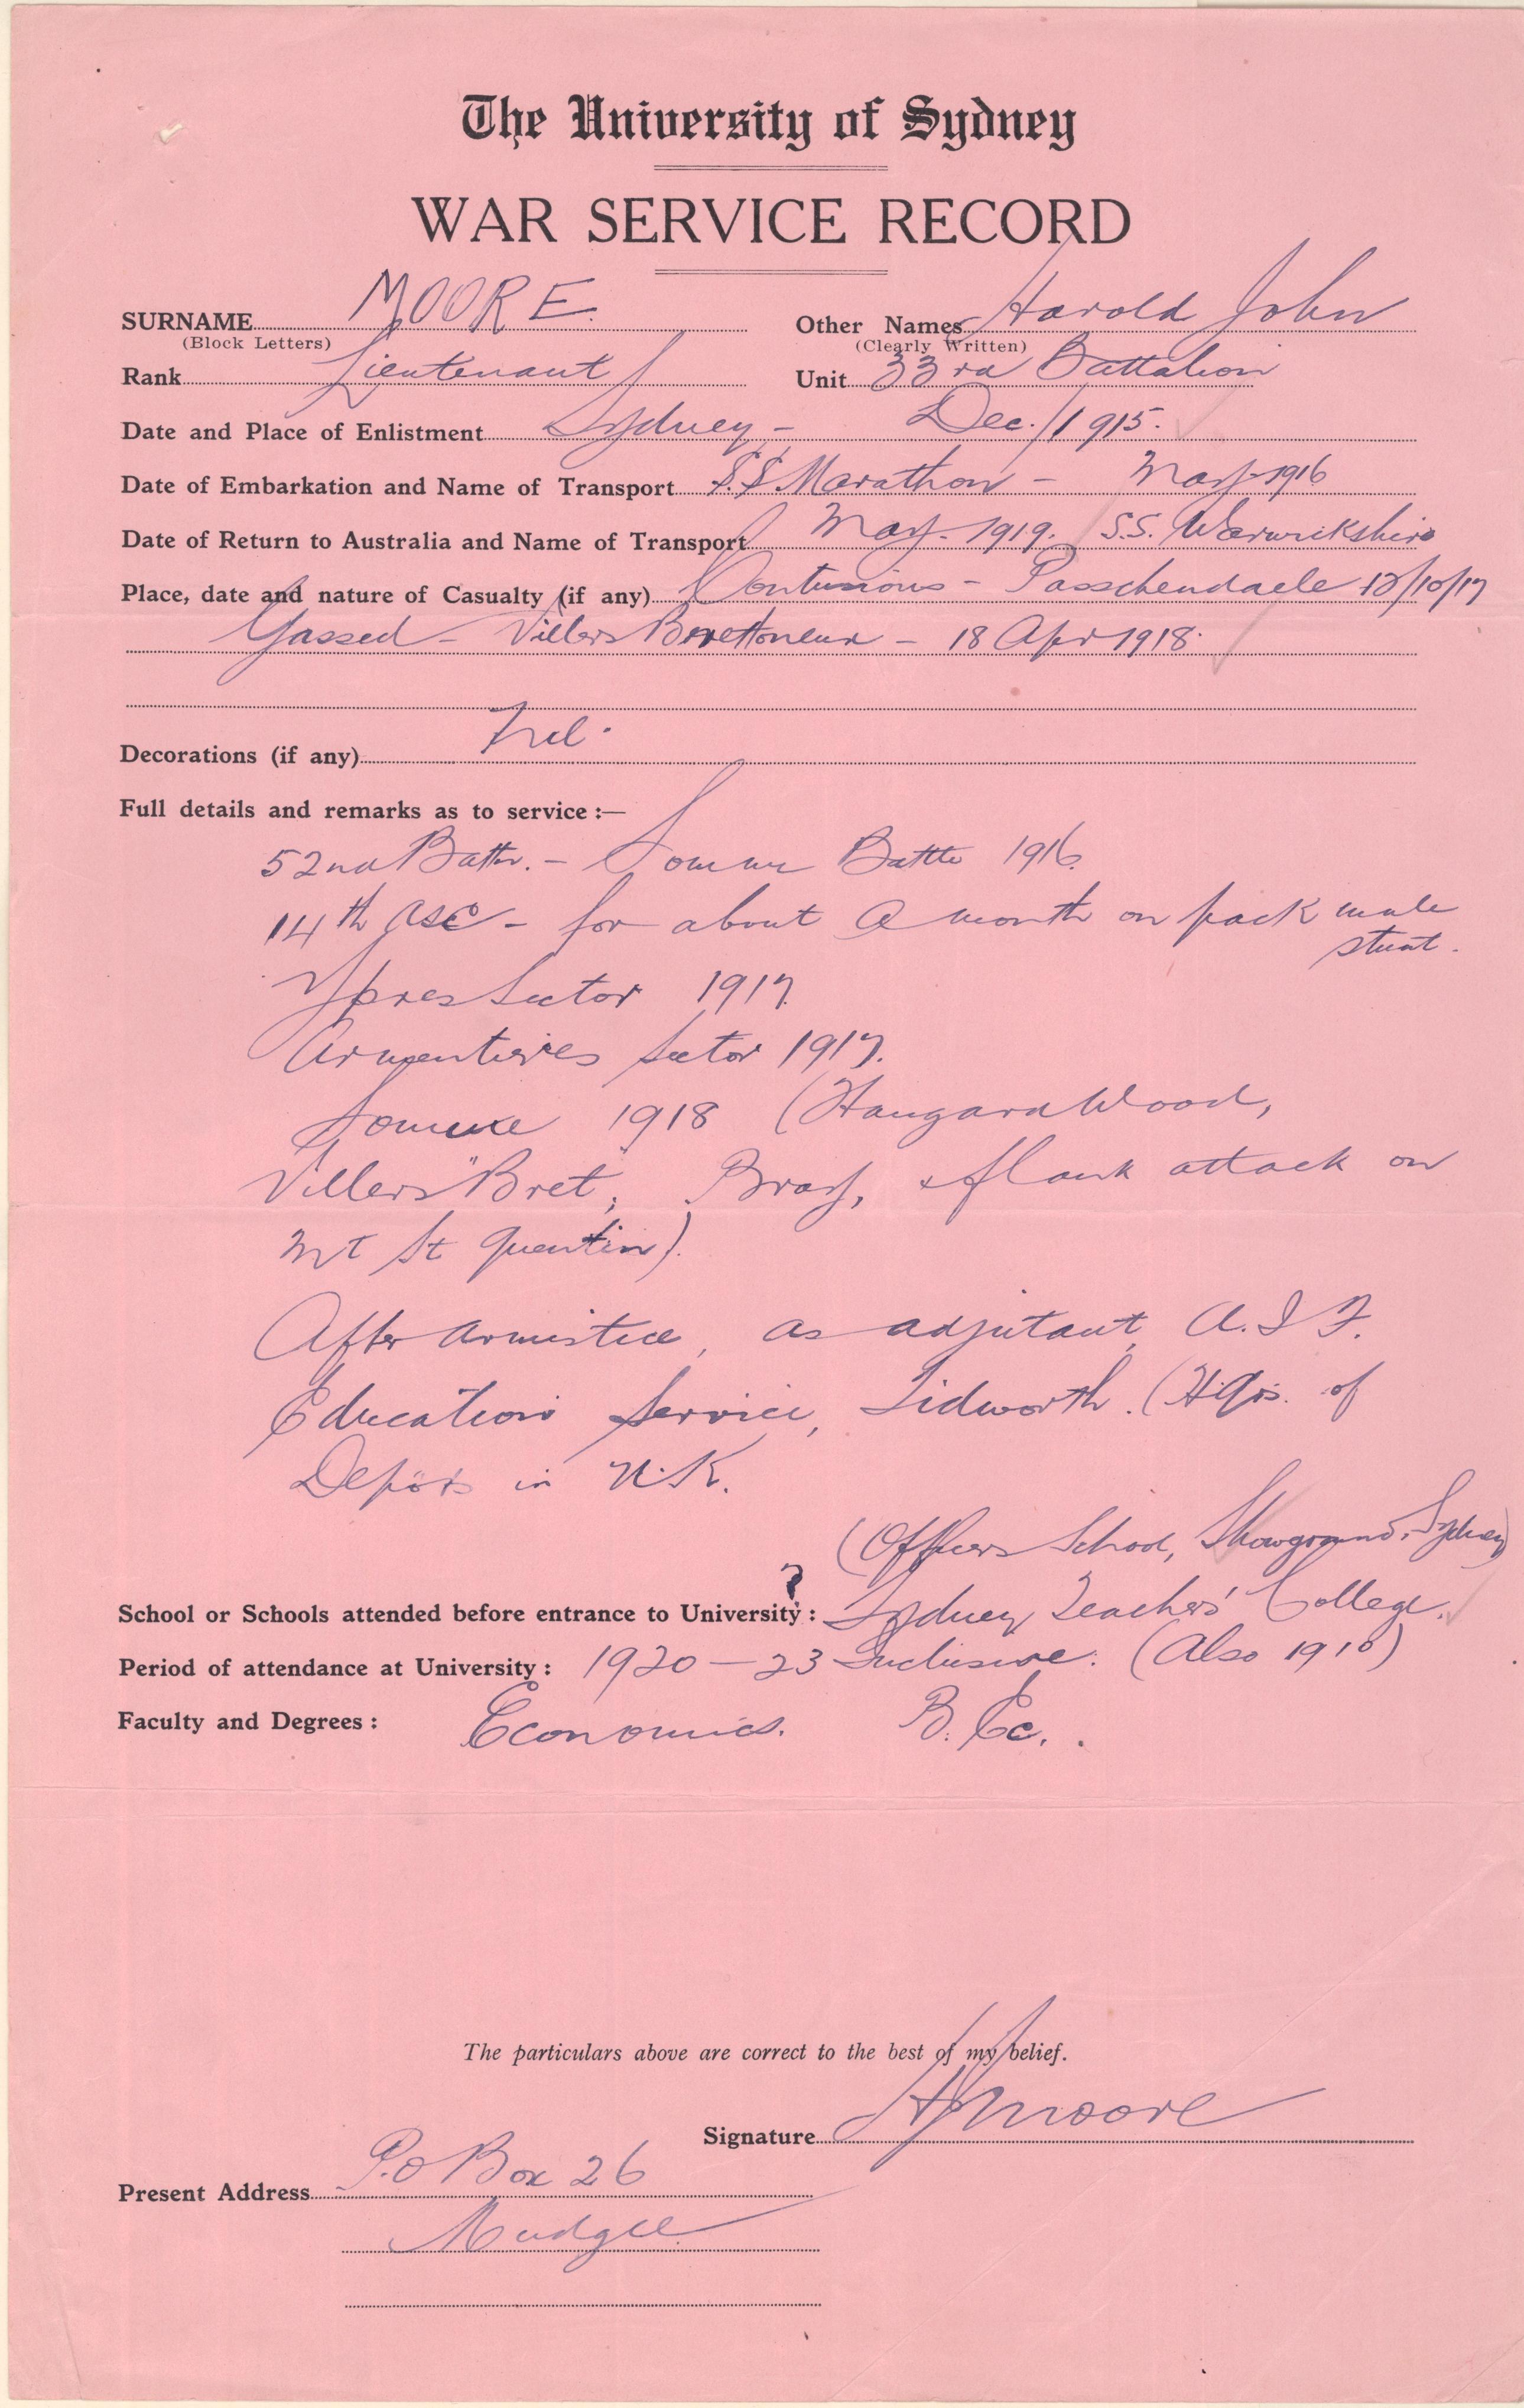 The University of Sydney
WAR SERVICE RECORD
SURNAME MOORE. Other Names Harold John
(Block Letters) (Clearly Written)
Rank Lieutenant Unit 33rd Battalion
Date and Place of Enlistment Sydney - Dec. 1915.
Date of Embarkation and Name of Transport S.S Marathon - May 1916
Date of Return to Australia and Name of Transport May 1919. S.S. Warwickshire
Place, date and nature of Casualty (if any) Contusions - Passchendaele /10/17
Gassed - Villers Brettoneux - 18 Apr 1918.
Decorations (if any) Nil.
Full details and remarks as to service :—
52nd Battn. - Somme Battle 1916.
14th ASC - for about a month on pack mule
stunt.
Ypres Sector 1917.
Armentieres Sector 1917.
Somme 1918 (Hangard Wood,
Villers Bret, Bray, & flank attack on
Mt St Quentin).
After Armistice, as adjutant, A.I.F.
Education Service, Tidworth. (Hqrs. of
Depots in U.K.
(Officers School, Showground, Sydney)
?
School or Schools attended before entrance to University : Sydney Teachers' College.
Period of attendance at University : 1920 — 23 Inclusive. (Also 1910)
Faculty and Degrees : Economics. B. Ec.
The particulars above are correct to the best of my belief.
Signature HJMoore
Present Address P.O Box 26
Mudgee